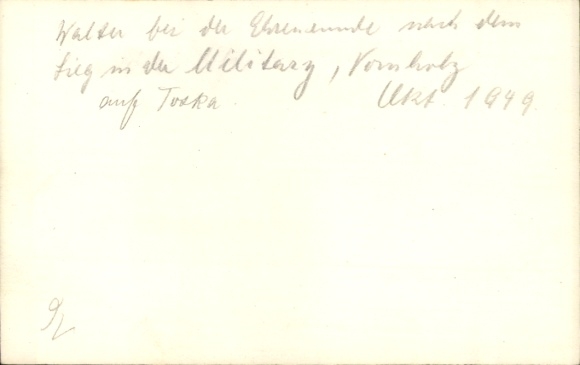 Walter bei der Ehrenrunde nach dem
Sieg in der Military, Vornholz
auf Toska Okt. 1949.